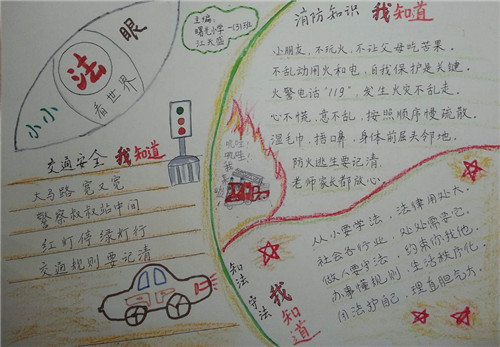 小小
法
眼
看世界
主编：
曙光小学一(3)班
江天盛
消防知识 我知道
小朋友，不玩火，不让父母吃苦果。
不乱动用火和电，自我保护是关键。
火警电话“119”，发生火灾不乱走。
心不慌，意不乱，按照顺序慢疏散。
湿毛巾，捂口鼻，身体前屈头邻地。
防火逃生要记清，
老师家长都放心。
交通安全 我知道
大马路 宽又宽
警察叔叔站中间
红灯停 绿灯行
交通规则要记清
知法 守法 我知道
从小要学法，法律用处大。
社会各行业，处处需要它。
做人要守法，约束你我他。
办事懂规则，生活秩序化。
用法护自己，理直胆气大。